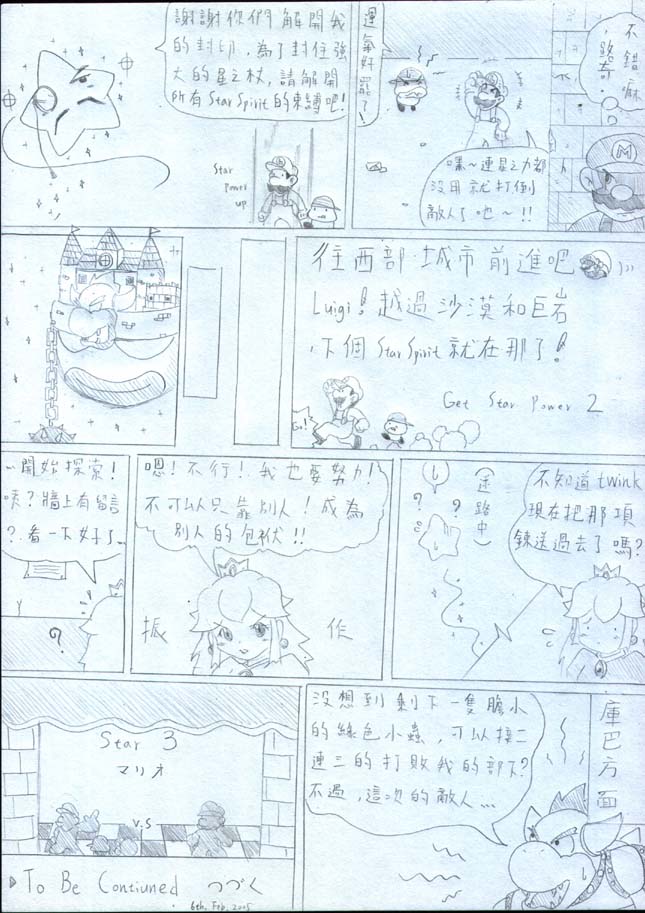 不錯嘛
，路奇！
M
運氣好罷了！
嘿～連星之力都
沒用就打倒
敵人了也～!!
謝謝你們解開我
的封印，為了封住強
大的星之杖，請解開
所有Star Spirit的束縛吧！
Star
Power
up
往西部城市前進吧
Luigi！越過沙漠和巨岩
，下個Star Spirit就在那了！
Get Star Power 2
Go!
不知道twink
現在把那項
鍊送過去了嗎？
（迷路中）
？
？
！
嗯！不行！我也要努力！
不可以只靠別人！成為
別人的包袱!!
振作
…開始探索！
咦？牆上有留言
？看一下好了…
？
庫巴方面
沒想到剩下一隻膽小
的綠色小蟲，可以接二
連三的打敗我的部下？
不過，這次的敵人…
Star 3
マリオ
V.S
To Be Contiuned つづく
6th. Feb. 2005